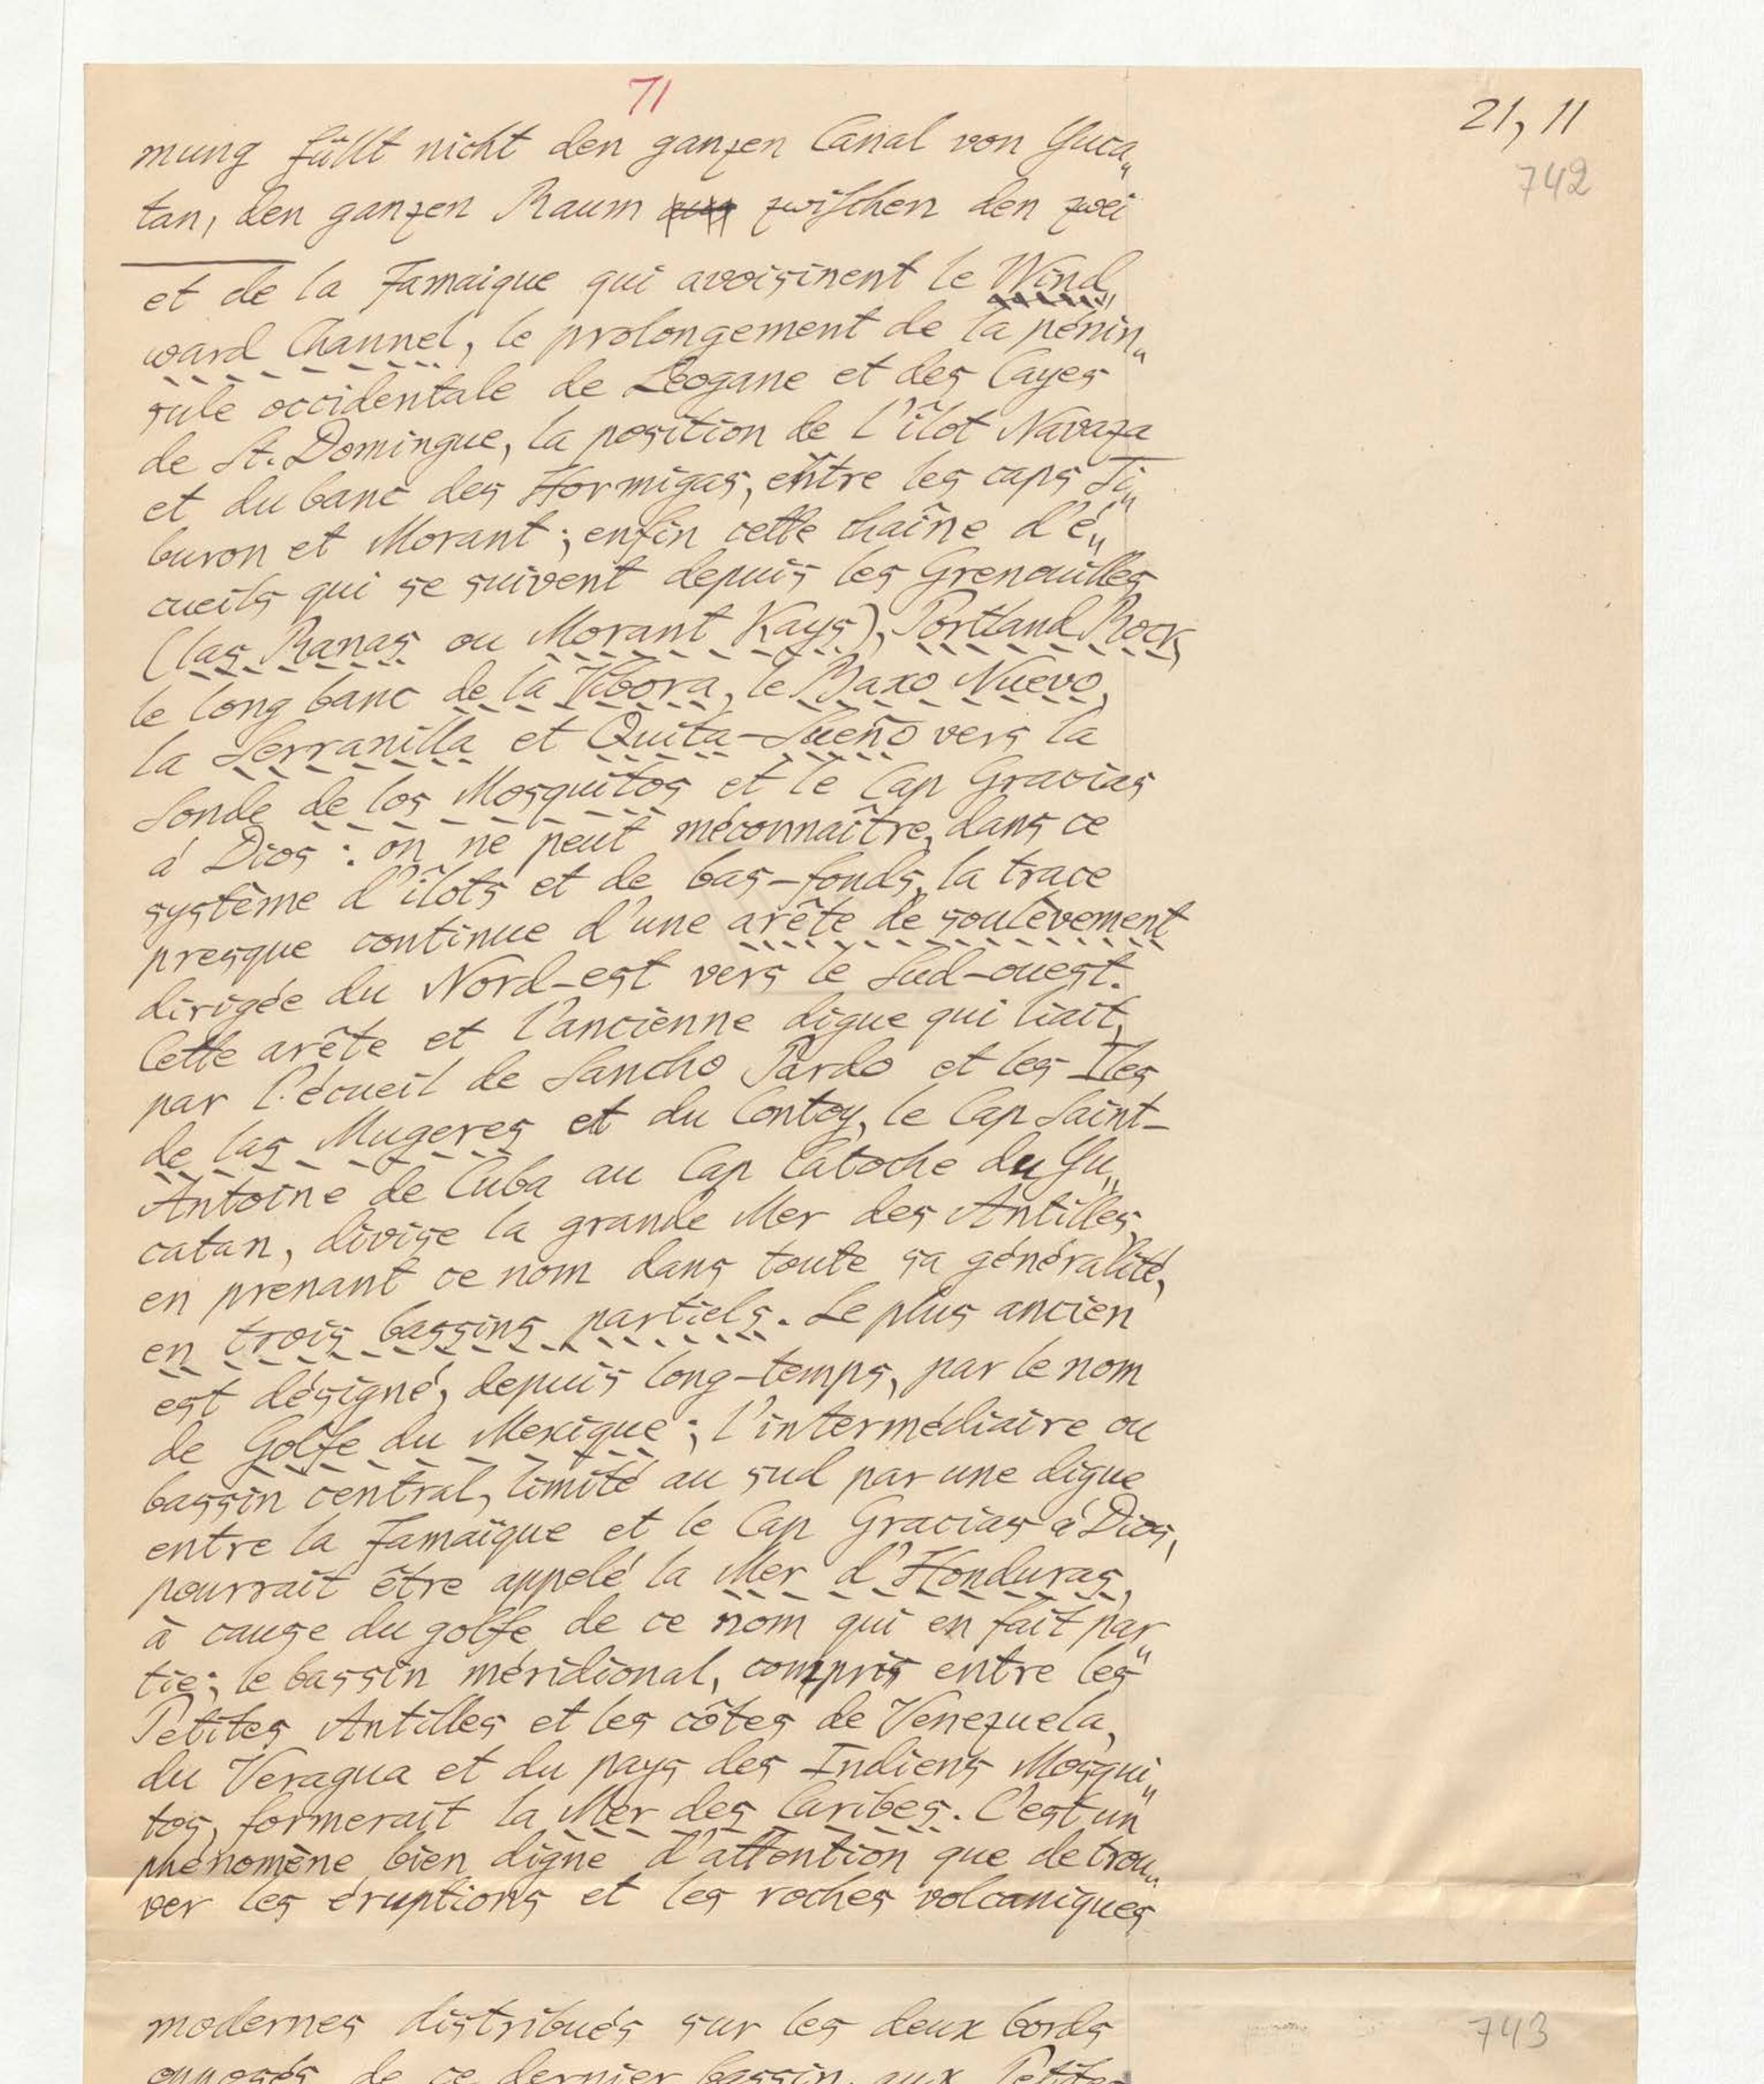 71
21, 11
742
mung füllt nicht den ganzen Canal von Yuca„
tan, den ganzen Raum zwischen den zwei
et de la Jamaique qui avoisinent le Wind„
ward Channel, le prolongement de la pénin„
sule occidentale de Léogane et des Cayes
de St. Domingue, la position de l'îlot Navaza
et du banc des Hormigas, entre les caps Ti„
buron et Morant; enfin cette chaîne d'é„
cueils qui se suivent depuis les Grenouilles
(las Ranas ou Morant Kays), Portland Rock,
le long banc de la Vibora, le Baxo Nuevo,
la Serranilla et Quita-Sueño vers la
Sonde de los Mosquitos et le Cap Gracias
á Dios: on ne peut méconnaître, dans ce
système d'îlots et de bas-fonds, la trace
presque continue d'une arête de soulèvement
dirigée du Nord-est vers le Sud-ouest.
Cette arête et l'ancienne digue qui liait,
par l'écueil de Sancho Pardo et les Iles
de las Mugeres et du Contoy, le Cap Saint-
Antoine de Cuba au Cap Catoche du Yu„
catan, divise la grande Mer des Antilles,
en prenant ce nom dans toute sa généralité,
en trois bassins partiels. Le plus ancien
est désigné, depuis long-temps, par le nom
de Golfe du Mexique; l'intermédiaire ou
bassin central, limité au sud par une digue
entre la Jamaïque et le Cap Gracias á Dios,
pourrait être appelé la Mer d'Honduras,
à cause du golfe de ce nom qui en fait par„
tie; le bassin méridional, compris entre les
Petites Antilles et les côtes de Venezuela,
du Veragua et du pays des Indiens Mosqui„
tos, formerait la Mer des Caribes. C'est un
phénomène bien digne d'attention que de trou„
ver les éruptions et les roches volcaniques
modernes distribués sur les deux bords
743
opposés de ce dernier bassin, aux Petites